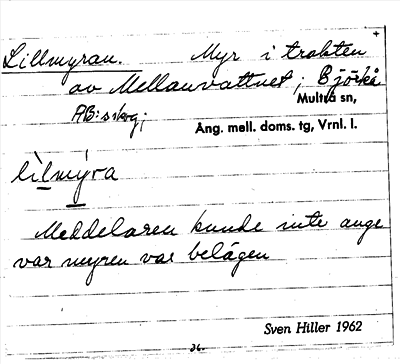 +
Lillmyran. Myr i trakten
av Mellanvattnet; Björkå
AB:s skog;
Multrå sn,
Ång. mell. doms. tg, Vrnl. l.
lìlmỳra
Meddelaren kunde inte ange
var myren var belägen
Sven Hiller 1962
36.